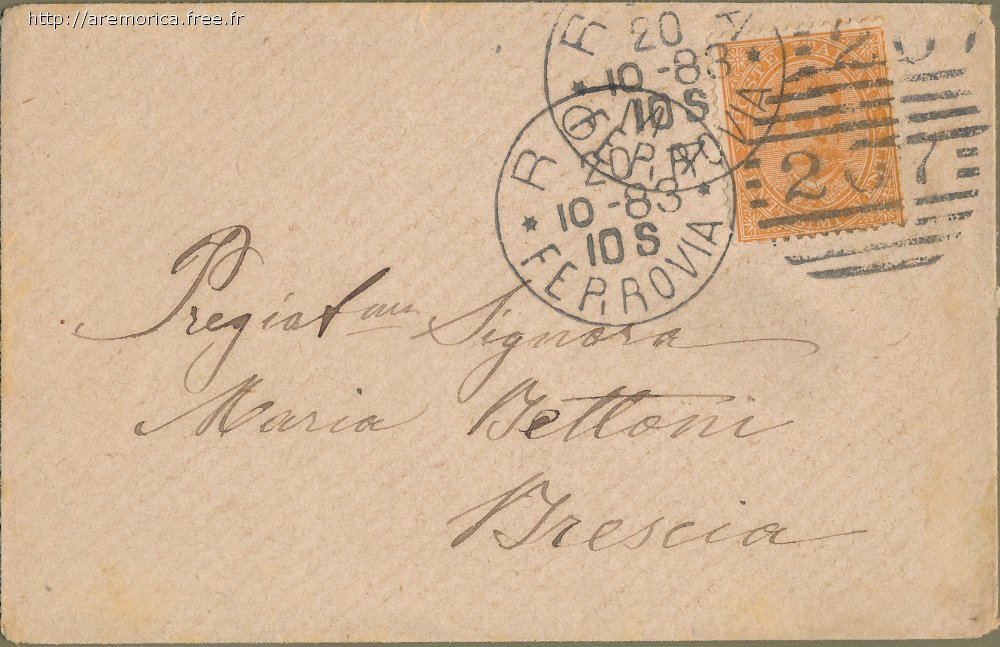 http://aremorica.free.fr
ROMA
20
10-83
10 S
* FERROVIA *
ROMA
20
10-83
10 S
* FERROVIA *
207
207
Pregiat.ma Signora
Maria Bettoni
Brescia